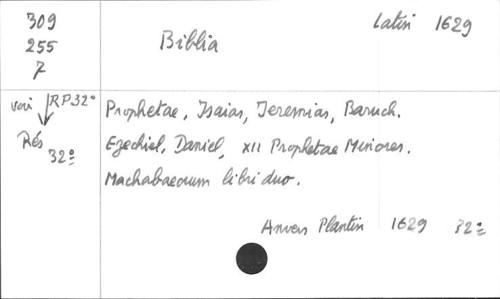 309
255
7
Biblia
Latin 1629
voir RP 32º
Rés
32º
Prophetae, Isaias, Jeremias, Baruch.
Ezechiel, Daniel, XII Prophetae Minores.
Machabaeorum libri duo.
Anvers Plantin 1629 32º